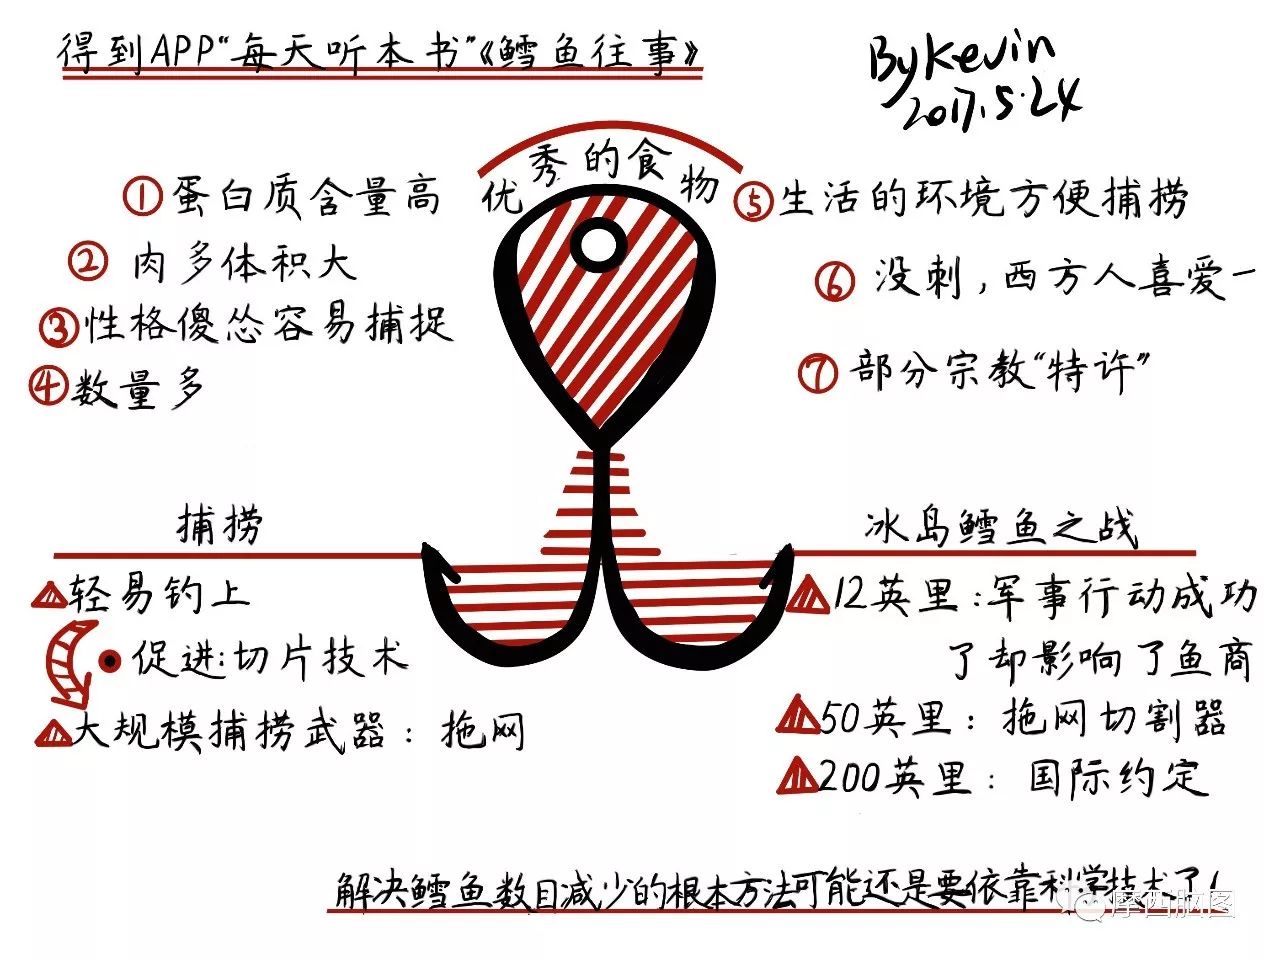 得到APP“每天听本书”《鳕鱼往事》
By Kevin
2017.5.24
优秀的食物
①蛋白质含量高
②肉多体积大
③性格傻怂容易捕捉
④数量多
⑤生活的环境方便捕捞
⑥没刺,西方人喜爱
⑦部分宗教“特许”
捕捞
轻易钓上
促进:切片技术
大规模捕捞武器:拖网
冰岛鳕鱼之战
12英里:军事行动成功
了却影响了鱼商
50英里:拖网切割器
200英里:国际约定
解决鳕鱼数目减少的根本方法可能还是要依靠科学技术了!
摩西脑图